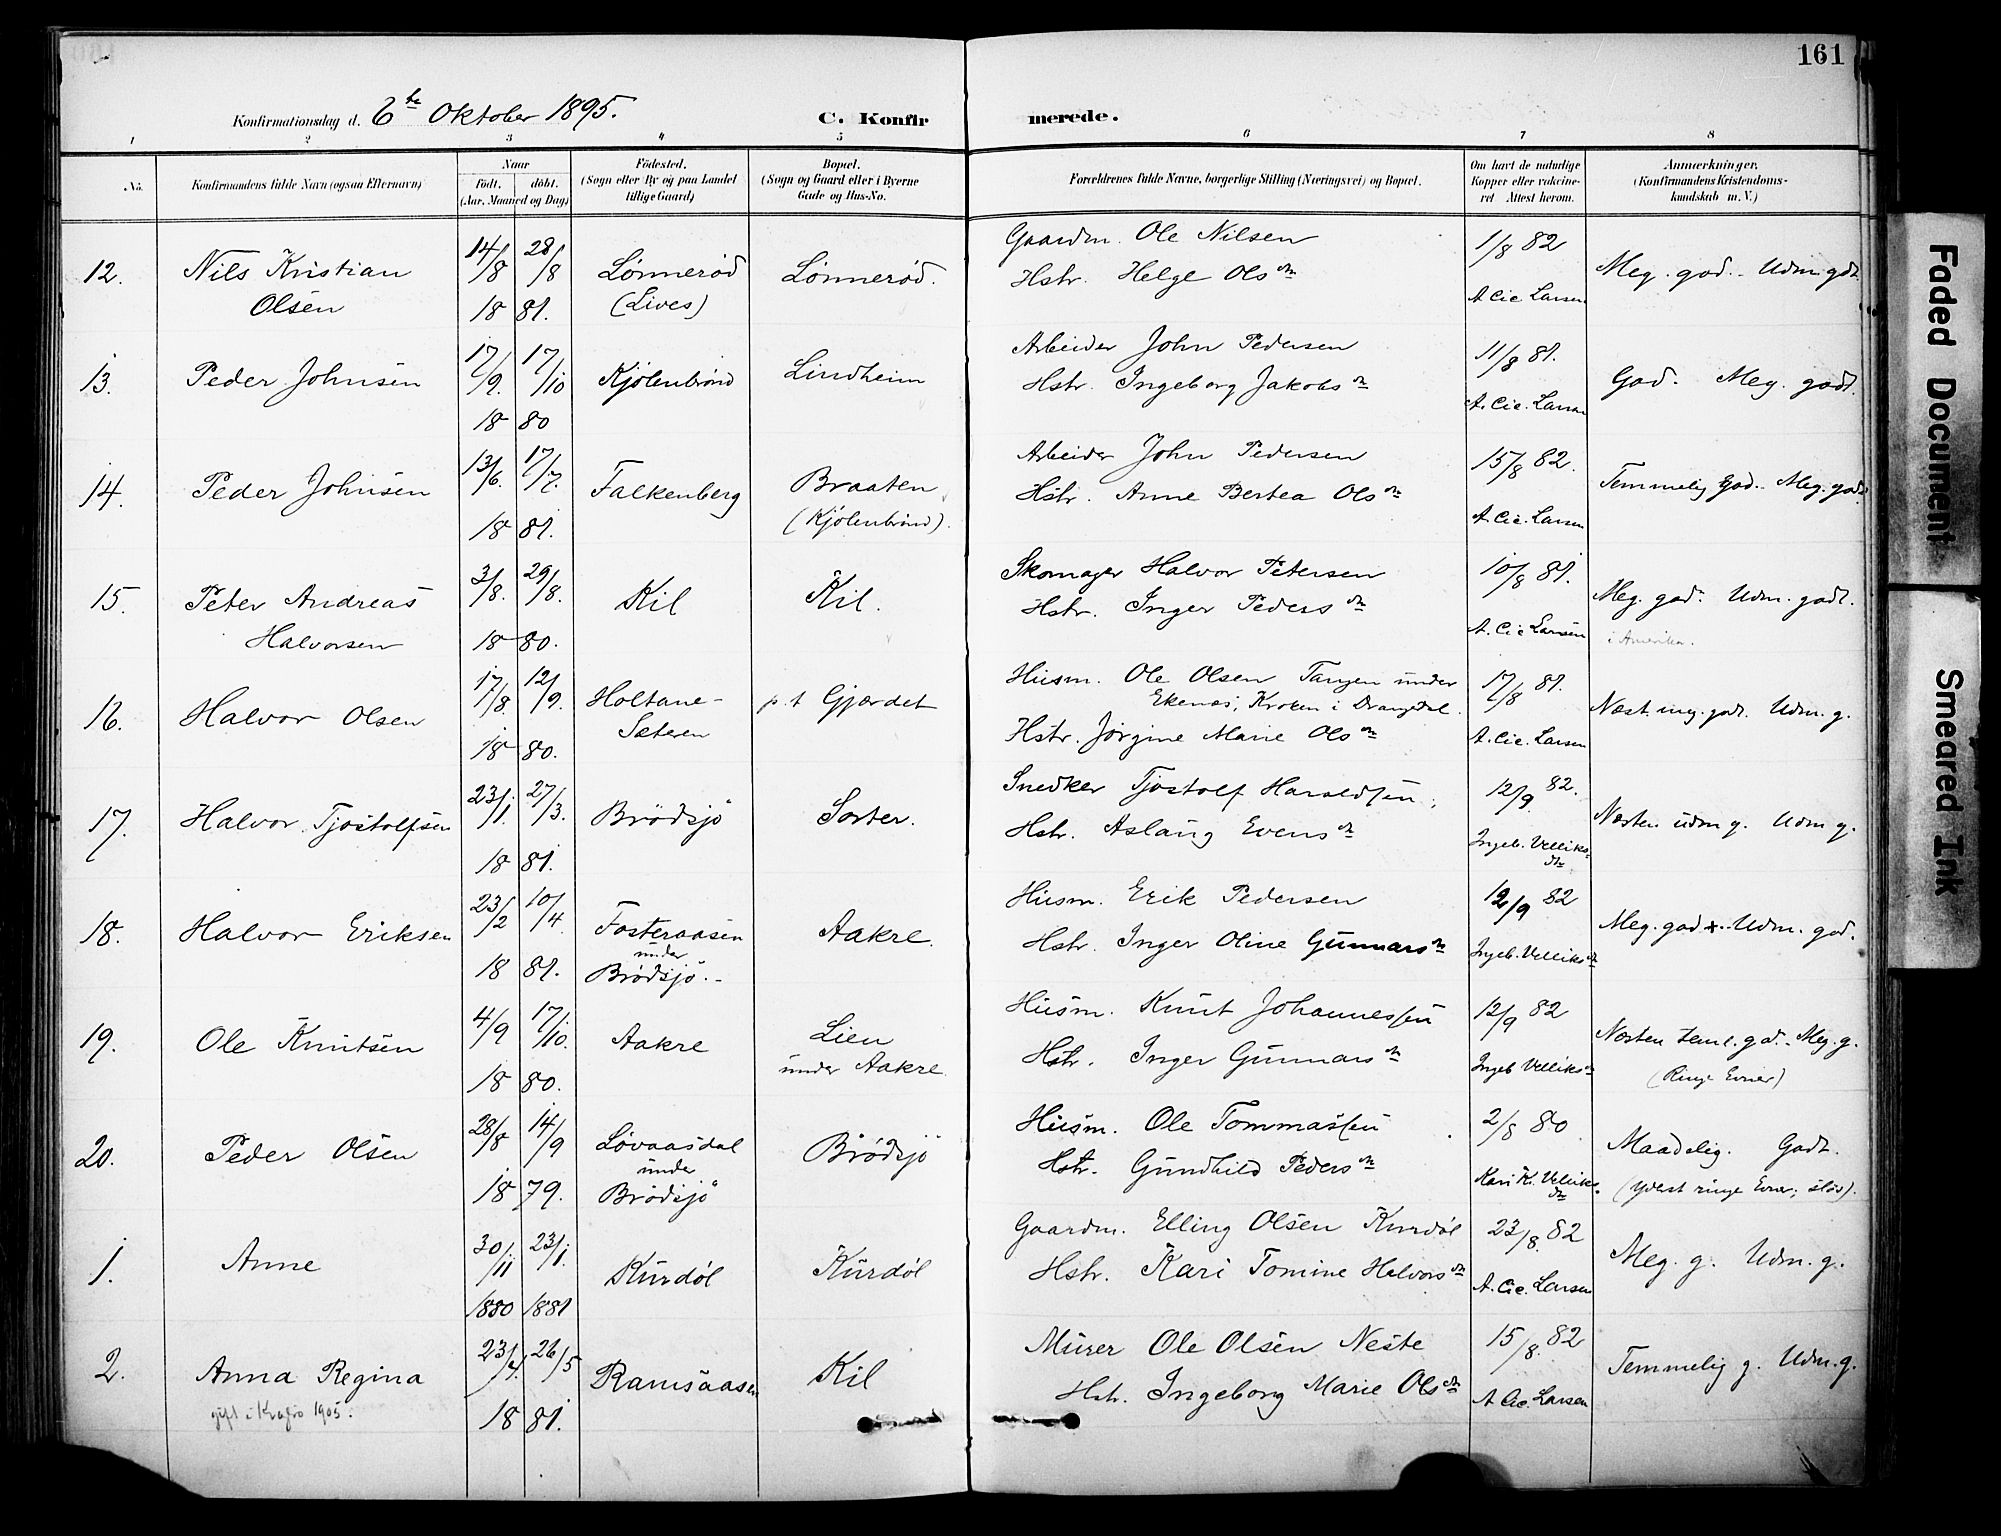 161
Konfirmationsdag d. 6te Oktober 1895. C. Konfirmerede.
1 2 3 4 5 6 7 8
No. Konfirmandens fulde Navn (ogsaa Efternavn) Naar født. døbt. (Aar, Maaned og Dag) Fødested. (Sogn eller By og paa Landet tillige Gaard) Bopæl. (Sogn og Gaard eller i Byerne Gade og Hus-No. Forældrenes fulde Navne, borgerlige Stilling (Næringsvei) og Bopæl. Om havt de naturlige Kopper eller vaccineret Attest herom. Anmærkninger. (Konfirmandens Kristendomskundskab m. V.)
12. Nils Kristian Olsen 14/8 28/8 1881. Lønnerød (Lives) Lønnerød. Gaardm. Ole Nilsen
Hstr. Helge Olsdtr 1/8 82 A. Cie Larsen Meg. god. - Udm. godt
13. Peder Johnsen 17/9. 17/10 1880 Kjølenbrønd Lindheim Arbeider John Pedersen
Hstr. Ingeborg Jakobsdtr 11/8 81. A. Cie. Larsen God. Meg. godt.
14. Peder Johnsen 13/6. 17/7. 1881. Falkenberg Braaten (Kjølenbrønd). Arbeider John Pedersen
Hstr. Anne Bertea Olsdtr 15/8 82. A. Cie. Larsen Temmelig god. - Meg. godt
15. Peter Andreas Halvorsen 3/8. 29/8. 1880. Kil Kil. Skomager Halvor Petersen
Hstr. Inger Pedersdtr 10/8 81. A. Cie Larsen Meg. god. Udm. godt.
i Amerika.
16. Halvor Olsen 17/8. 12/9. 1880. Holtane-Sæteren p. t Gjærdet Husm. Ole Olsen Tangen under
Ekenæs, Kroken i Drangedal.
Hstr. Jørgine Marie Olsdtr 17/8 81. A. Cie. Larsen Næst. meg. godt. Udm. g.
17. Halvor Tjøstolfsen 23/1. 27/3. 1881. Brødsjø Sorter. Snedker Tjøstolf Haraldsen,
Hstr. Aslaug Evensdtr 12/9 82. Ingeb. Velliksdtr Næsten udm g. Udm g.
18. Halvor Eriksen 23/2 10/4. 1881. Fosteraasen under Brødsjø. - Aakre. Husm. Erik Pedersen
Hstr. Inger Oline Gunnarsdtr 12/9 82 Ingeb. Velliksdtr Meg. god +. - Udm. god.
19. Ole Knutsen 4/9 17/10. 1880. Aakre Lien under Aakre Husm. Knut Johannessen
Hstr. Inger Gunnarsdtr 12/9 82 Ingeb Velliksdtr Næsten teml. gd. - Meg. g.
(Ringe Evner)
20. Peder Olsen 28/8 14/9 1879. Løvaasdal under Brødsjø Brødsjø Husm. Ole Tommassen
Hstr. Gunhild Pedersdtr 2/8 80 Kari K. Velliksdtr. Maadelig. Godt.
(Yderst ringe Evner; sløv).
1. Anne 30/11 1880 23/1. 1881 Kurdøl Kurdøl Gaardm. Elling Olsen Kurdøl
Hstr. Kari Tomine Halvorsdtr 23/8. 82 A. Cie. Larsen Meg. g. Udm. g.
2. Anna Regina 23/4. 26/5 1881. Ramsaasen Kil Murer Ole Olsen Neste
Hstr. Ingeborg Marie Olsdtr 15/8. 82 A Cie. Larsen Temmelig g. Udm. g.
gift i Kragerø 1905.
Faded Document
Smeared Ink